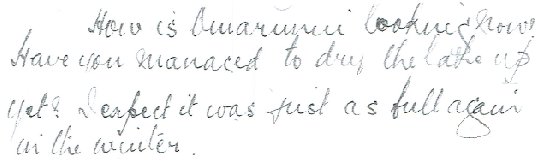 How is Omarunui looking now.
Have you managed to dry the lake up
yet? I expect it was just as full again
in the winter.